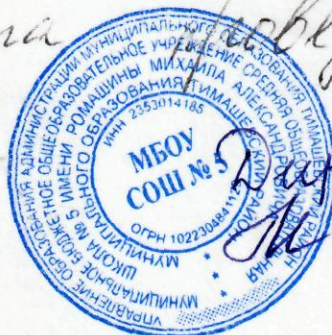 УПРАВЛЕНИЕ ОБРАЗОВАНИЯ АДМИНИСТРАЦИИ МУНИЦИПАЛЬНОГО ОБРАЗОВАНИЯ ТИМАШЕВСКИЙ РАЙОН
МУНИЦИПАЛЬНОЕ БЮДЖЕТНОЕ ОБЩЕОБРАЗОВАТЕЛЬНОЕ УЧРЕЖДЕНИЕ СРЕДНЯЯ ОБЩЕОБРАЗОВАТЕЛЬНАЯ
ШКОЛА №5 ИМЕНИ РОМАШИНЫ МИХАИЛА АЛЕКСАНДРОВИЧА
МУНИЦИПАЛЬНОГО ОБРАЗОВАНИЯ ТИМАШЕВСКИЙ РАЙОН
ИНН 2353014185
МБОУ
СОШ № 5
ОГРН 10223048411